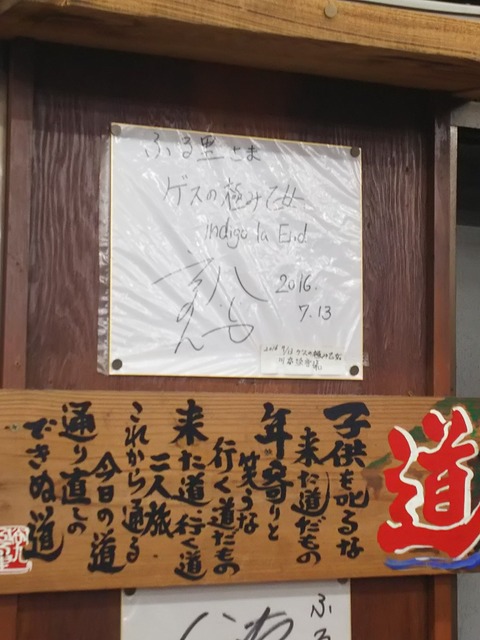 ふる里さま
ゲスの極み乙女
indigo la End
2016.
7.13
道
子供を叱るな
来た道だもの
年寄りと
笑うな
行く道だもの
来た道 行く道
二人旅
これから通る
今日の道
通り直しの
できぬ道
ふる